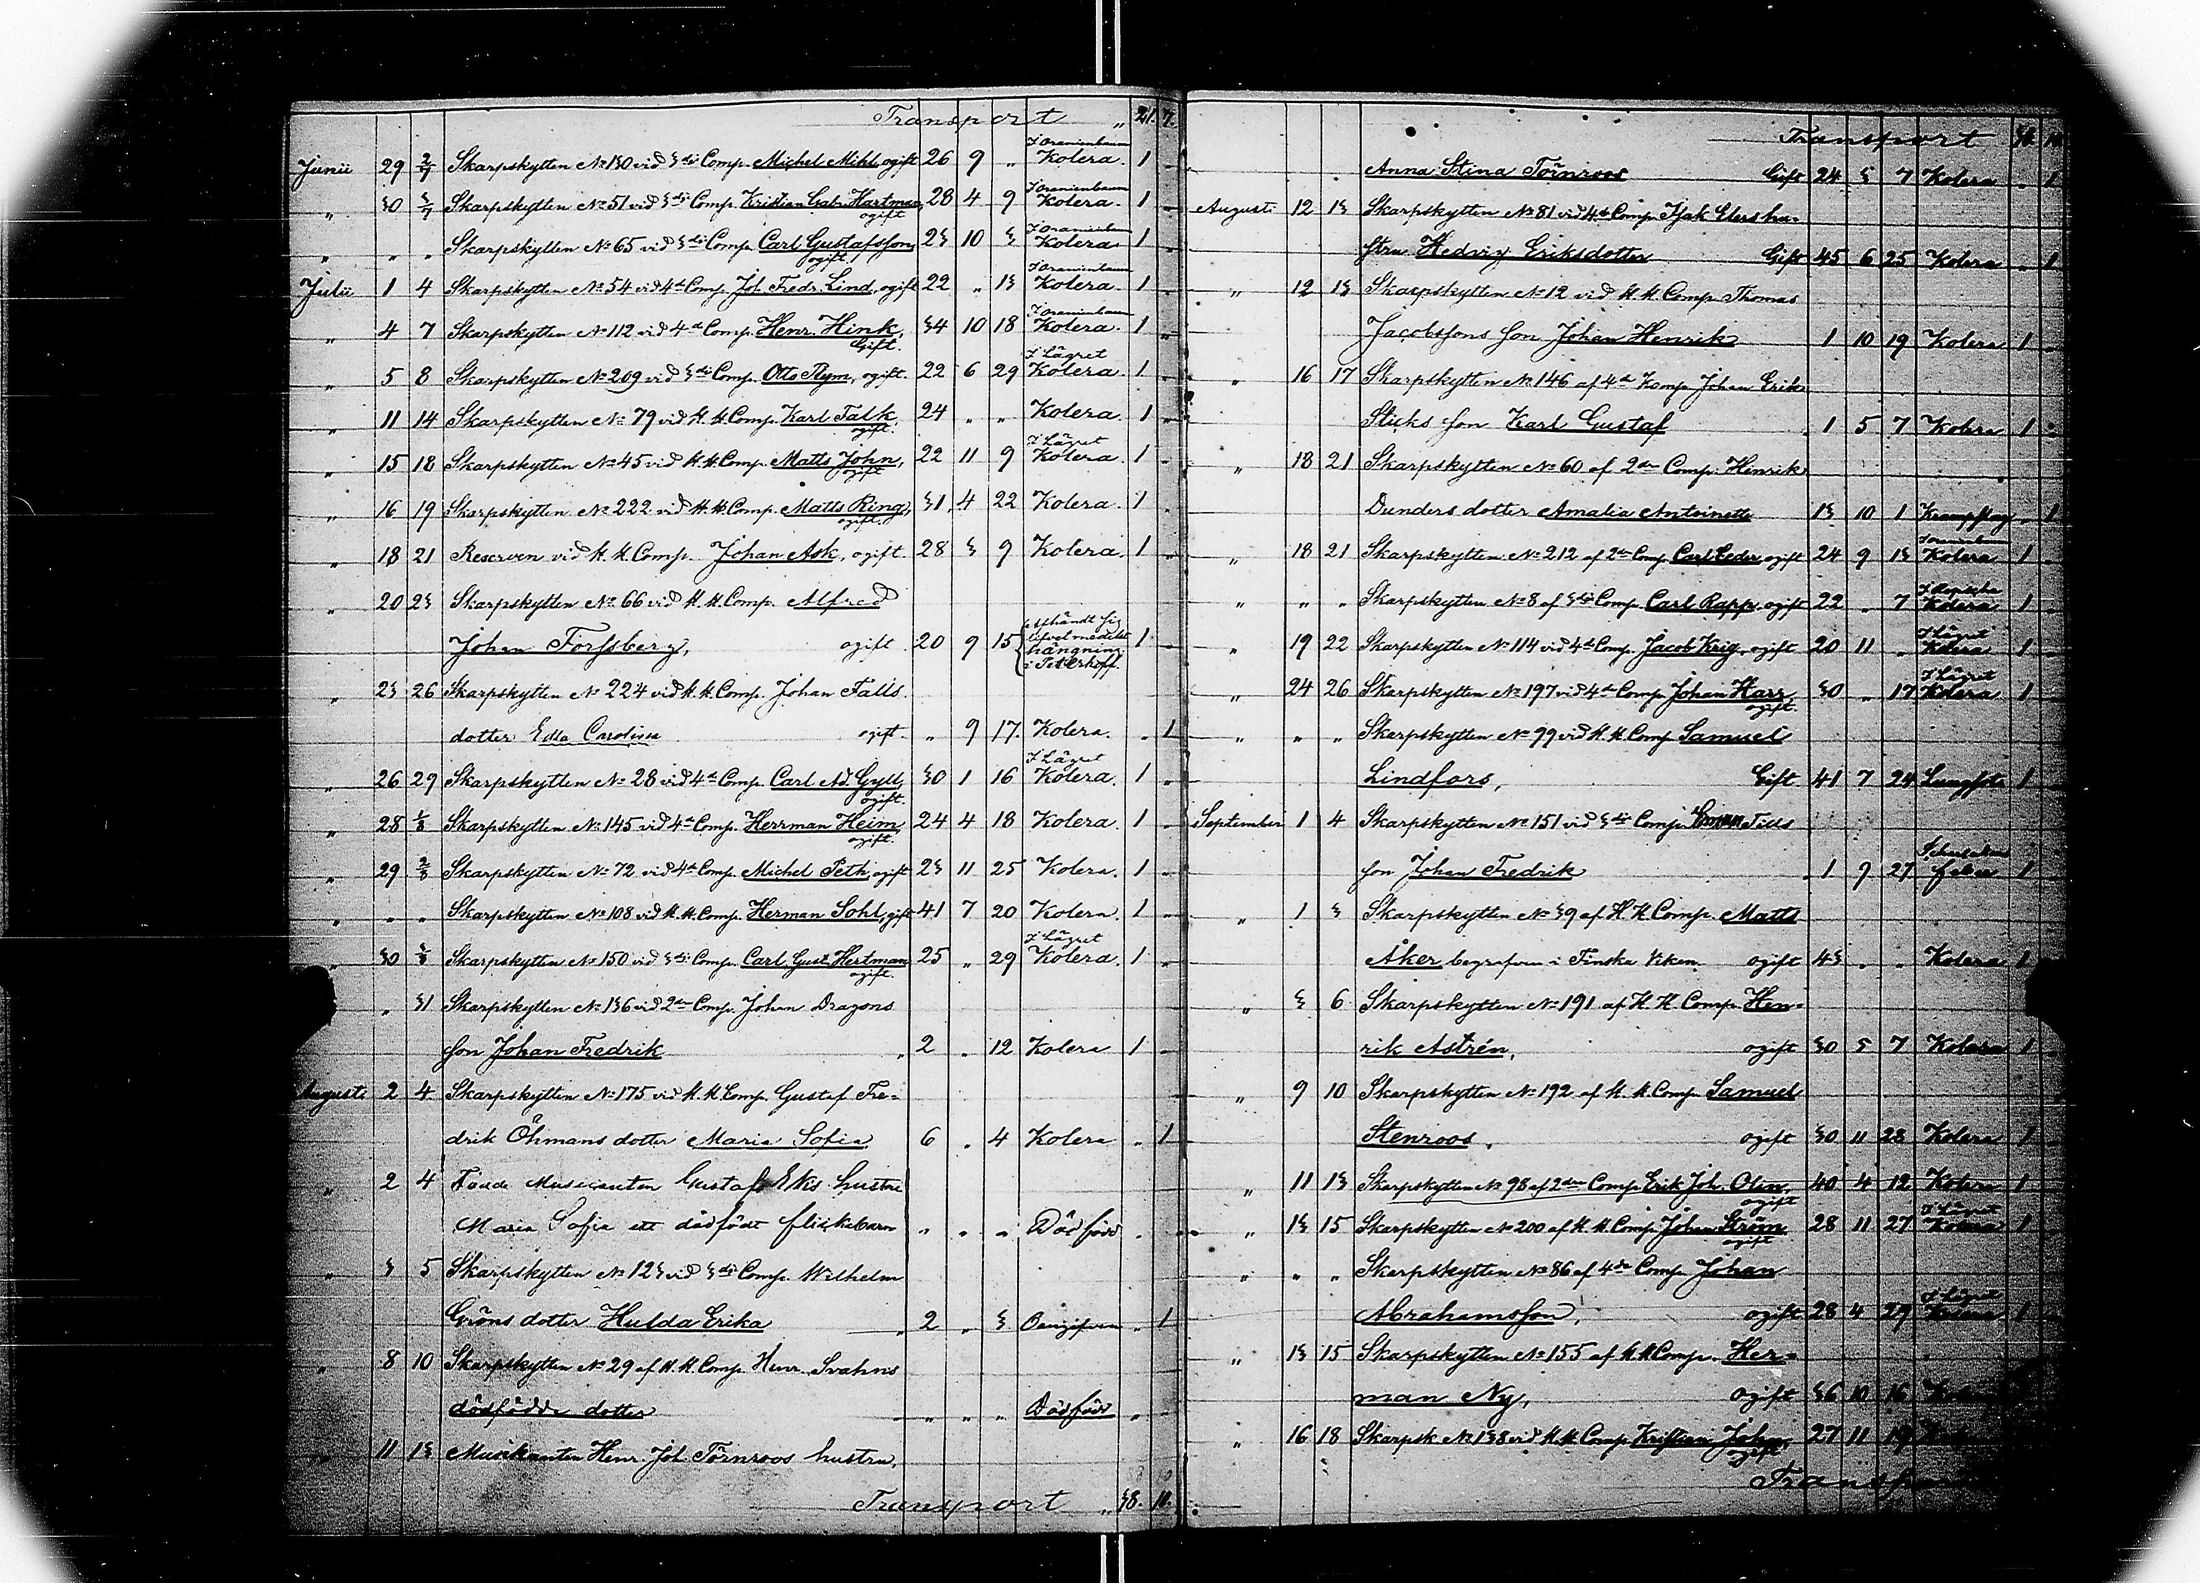 Transport „ 21. 7.
Junii 29 2/7 Skarpskytten No 130 vid 3die Comp. Michel Mihl ogift 26 9 „ I Oranienbaum Kolera. 1
„ 30 3/7 Skarpskytten No 51 vid 3die Comp. Kristian Gabr. Hartman, ogift 28 4 9 I Oranienbaum Kolera. 1
„ „ „ Skarpskytten No 65 vid 3die Comp. Carl Gustafsson, ogift. 23 10 3 I Oranienbaum Kolera 1
Julii 1 4 Skarpskytten No 54 vid 4de Comp. Joh. Fredr. Lind, ogift 22 „ 13 I Oranienbaum Kolera. 1
„ 4 7 Skarpskytten No 112 vid 4de Comp. Henr. Hink, Gift. 34 10 18 I Oranienbaum Kolera. 1
„ 5 8 Skarpskytten No 209 vid 3die Comp. Otto Rym, ogift. 22 6 29 I Lägret Kolera. 1
„ 11 14 Skarpskytten No 79 vid H. H. Comp. Karl Falk, ogift. 24 „ „ Kolera. 1
„ 15 18 Skarpskytten No 45 vid H. H. Comp. Matts John, ogift 22 11 9 I Lägret Kolera. 1
„ 16 19 Skarpskytten No 222 vid H. H. Comp. Matts Ring, ogift. 31 4 22 Kolera 1
„ 18 21 Reserven vid H. H. Comp. Johan Ask, ogift. 28 3 9 Kolera. 1
„ 20 23 Skarpskytten No 66 vid H. H. Comp. Alfred
Johan Forssberg, ogift 20 9 15 Afhändt sig lifvet medelst hängning i Peterhoff 1
„ 23 26 Skarpskytten No 224 vid H. H. Comp. Johan Falls
dotter Edla Carolina ogift. „ 9 17. Kolera. „ 1
„ 26 29 Skarpskytten No 28 vid 4de Comp. Carl Ad. Gyll, ogift. 30 1 16 I Lägret Kolera. 1
„ 28 1/8 Skarpskytten No 145 vid 4de Comp. Herrman Heim, ogift. 24 4 18 Kolera. 1
„ 29 2/8 Skarpskytten No 72 vid 4de Comp. Michel Peth, ogift 23 11 25 Kolera. 1
„ „ „ Skarpskytten No 108 vid H. H. Comp. Herman Sohl, gift 41 7 20 Kolera 1
„ 30 3/8 Skarpskytten No 150 vid 3die Comp. Carl Gust. Hertman ogift. 25 „ 29 I Lägret Kolera. 1
„ 31 Skarpskytten No 136 vid 2dra Comp. Johan Dragons
son Johan Fredrik „ 2 „ 12 Kolera 1
Augusti 2 4 Skarpskytten No 175 vid H. H. Comp. Gustaf Fre-
drik Öhmans dotter Maria Sofia 6 „ 4 Kolera „ 1
„ 2 4 Födde Musicanten Gustaf Eks hustru
Maria Sofia ett dödfödt flickebarn „ „ „ Död född
„ 3 5 Skarpskytten No 123 vid 3die Comp. Wilhelm
Gröns dotter Hulda Erika „ 2 „ 3 Oangifven „ 1
„ 8 10 Skarpskytten No 29 af H. H. Comp. Henr. Svahns
dödfödde dotter „ „ „ Dödfödd „
„ 11 13 Musikanten Henr. Joh. Törnroos hustru,
Transport „ 38. 10.
Transport 38. 10
Anna Stina Törnroos Gift 24 3 7 Kolera „ 1
Augusti 12 13 Skarpskytten No 81 vid 4de Comp. Isak Elers hu-
stru Hedvig Eriksdotter Gift 45 6 25 Kolera „ 1
„ 12 13 Skarpskytten No 12 vid H. H. Comp. Thomas
Jacobssons son Johan Henrik 1 10 19 Kolera 1
„ 16 17 Skarpskytten No 146 af 4de Komp. Johan Erik
Sticks son Karl Gustaf 1 5 7 Kolera 1
„ 18 21 Skarpskytten No 60 af 2dra Comp. Henrik
Dunders dotter Amalia Antoinette 13 10 1 Krampslag „ 1
„ 18 21 Skarpskytten No 212 af 2dra Comp. Carl Ceder, ogift 24 9 13 I Oranienbaum Kolera 1
„ „ „ Skarpskytten No 8 af 3die Comp. Carl Rapp, ogift 22 „ 7 Kolera 1
„ 19 22 Skarpskytten No 114 vid 4de Comp. Jacob Krig, ogift 20 11 „ I Lägret Kolera 1
„ 24 26 Skarpskytten No 197 vid 4de Comp. Johan Harr, ogift. 30 „ 17 I Lägret Kolera 1
„ „ „ Skarpskytten No 99 vid H. H. Comp. Samuel
Lindfors, Gift 41 7 24 Lungsot 1
September 1 4 Skarpskytten No 151 vid 3die Comp.
son Johan Fredrik 1 9 27 feber 1
„ 1 3 Skarpskytten No 39 af H. H. Comp. Matts
Åker begrafven i Finska Viken ogift 43 „ „ Kolera 1
„ 3 6 Skarpskytten No 191 af H. H. Comp. Hen-
rik Astrén, ogift 30 5 7 Kolera 1
„ 9 10 Skarpskytten No 192 af H. H. Comp. Samuel
Stenroos, ogift 30 11 28 Kolera 1
„ 11 13 Skarpskytten No 98 af 2dra Comp. Erik Joh. Olin, ogift 40 4 12 Kolera 1
„ 13 15 Skarpskytten No 200 af H. H. Comp. Johan Ström ogift 28 11 27 I Lägret Kolera 1
„ „ „ Skarpskytten No 86 af 4de Comp. Johan
Abrahamsson, ogift 28 4 29 I Lägret Kolera 1
„ 13 15 Skarpskytten No 155 af H. H. Comp. Her-
man Ny, ogift 36 10 16
„ 16 18 Skarpsk. No 138 vid H. H. Comp. Kristian John, ogift 27 11 19
Transport